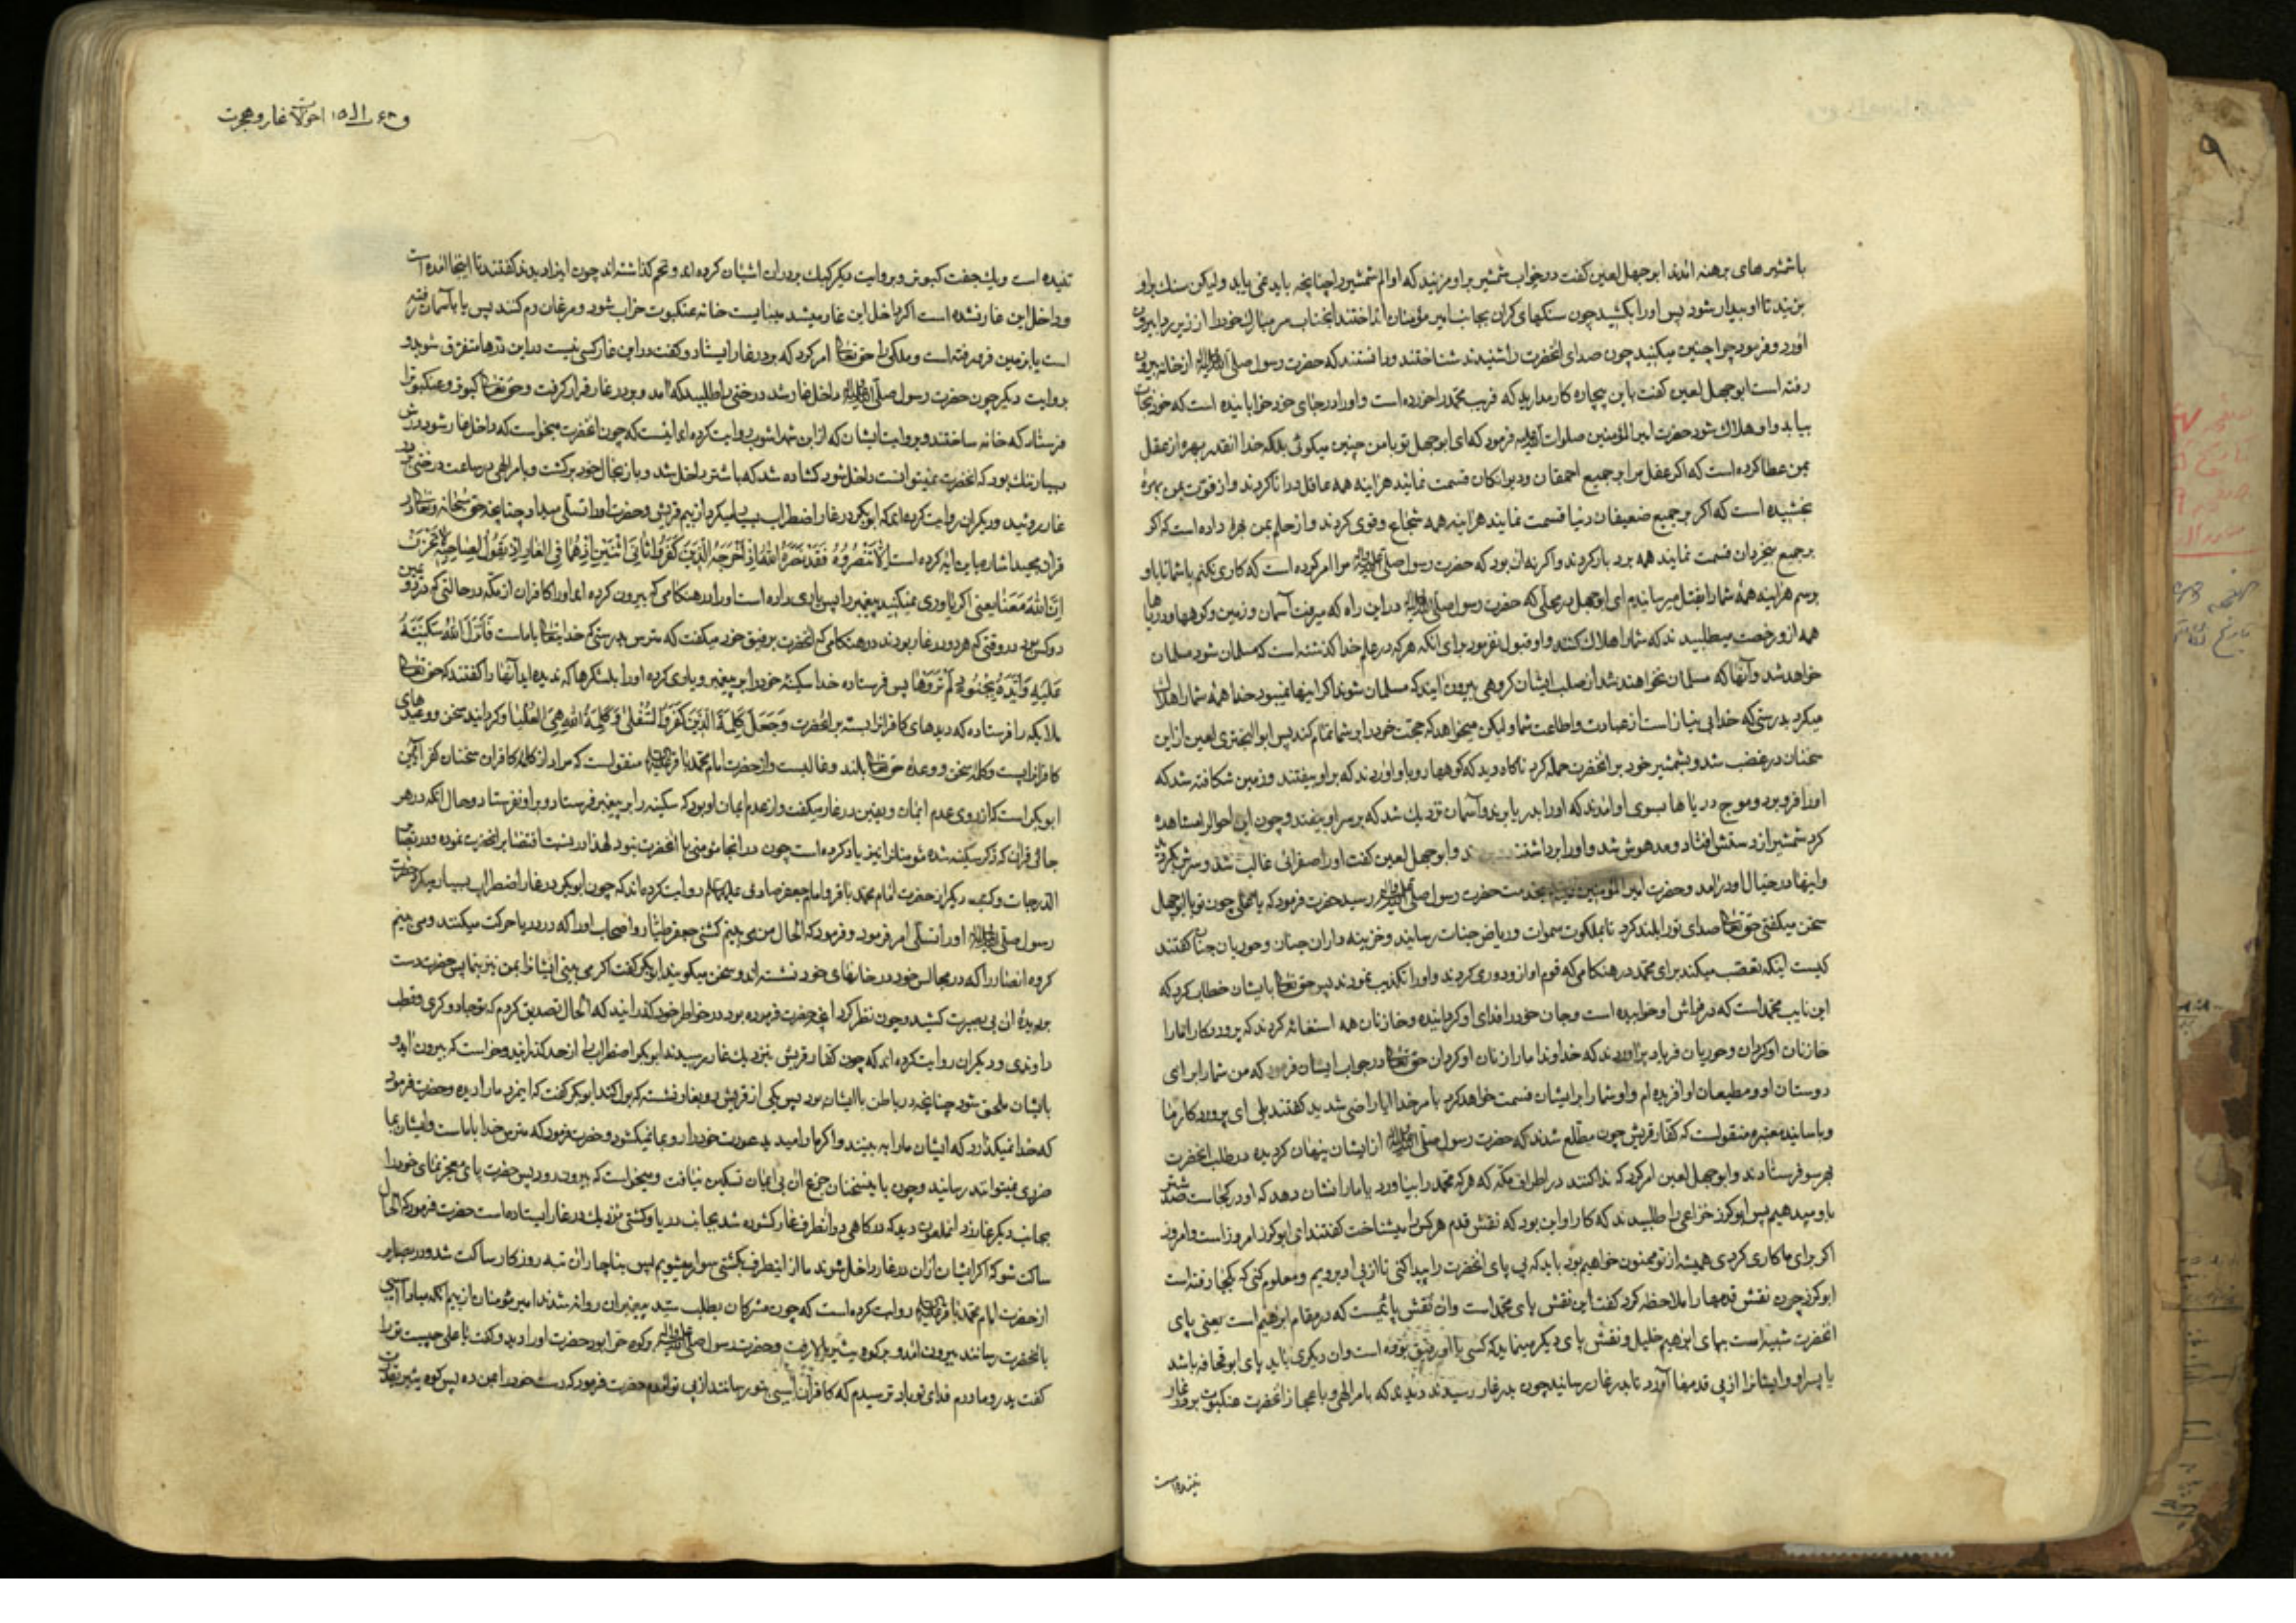 با شمشیرهای برهنه آمدند ابوجهل لعین گفت در خواب شمشیر بر او مزنید که او الم شمشیر را چنانچه باید نمی یابد ولیکن سنک بر او
بزنید تا او بیدار شود پس او را بکشید چون سنکهای کران بجانب امیر مؤمنان انداختند انجناب سر مبارک خود را از زیر ردا بیرون
آورد و فرمود چرا چنین میکنید چون صدای انحضرت را شنیدند شناختند و دانستند که حضرت رسول صلی الله علیه وآله از خانه بیرون
رفته است ابوجهل لعین گفت با این بیچاره کار مدارید که فریب محمد را خورده است و او را در جای خود خوابانیده است که خود نجات
بیابد و او هلاک شود حضرت امیر المؤمنین صلوات الله علیه فرمود که ای ابوجهل تو با من چنین میکوئی بلکه خدا انقدر بهره از عقل
بمن عطا کرده است که اکر عقل مرا بر جمیع احمقان و دیوانکان قسمت نمایند هراینه همه عاقل و دانا کردند و از قوت بمن بهرۀ
بخشیده است که اکر بر جمیع ضعیفان دنیا قسمت نمایند هراینه همه شجاع و قوی کردند و از حلم بمن بهره داده است که اکر
بر جمیع بیخردان قسمت نمایند همه بردبار کردند و اکر نه ان بود که حضرت رسول صلی الله علیه وآله مرا امر کرده است که کاری نکنم با شما تا باو
برسم هراینه همۀ شما را بقتل میرسانیدم ای ابوجهل بدرستی که حضرت رسول صلی الله علیه وآله در این راه که میرفت آسمان و زمین و کوهها و دریاها
همه از او رخصت میطلبیدند که شما را هلاک کنند و او قبول نفرمود برای انکه هر که در علم خدا کذشته است که مسلمان شود مسلمان
خواهد شد و آنها که مسلمان نخواهند شد از صلب ایشان کروهی بیرون آیند که مسلمان شوند اکر اینها نمیبود خدا همۀ شما را هلاک
میکرد بدرستی که خدا بی نیاز است از عبادت و اطاعت شما و لیکن میخواهد که حجت خود را بر شما تمام کند پس ابو البختری لعین از این
سخنان در غضب شد و بشمشیر خود بر انحضرت حمله کرد ناکاه دید که کوهها رو باو آوردند که بر او بیفتند و زمین شکافته شد که
او را فرو برد و موج دریاها بسوی او آمدند که او را بدریا برند و آسمان نزدیک شد که بر سر او بیفتد و چون این احوال را مشاهده
کرد شمشیر از دستش افتاد و مدهوش شد و او را برداشتند و ابوجهل لعین گفت او را صفرائی غالب شد و سرش کردید
و اینها در خیال او در آمد و حضرت امیر المؤمنین بخدمت حضرت رسول صلی الله علیه وآله رسید حضرت فرمود که یا علی چون تو با ابوجهل
سخن میکفتی حق تعالی صدای تو را بلند کرد تا بملکوت سموات و ریاض جنات رسانید و خزینه داران جنان و حوریان جنان گفتند
کیست اینکه تعصب میکند برای محمد در هنکامی که قوم او از او دوری کردند و او را تکذیب نمودند پس حق تعالی با ایشان خطاب کرد که
این نایب محمد است که در فراش او خوابیده است و جان خود را فدای او کردانیده و خازنان همه استغاثه کردند که پروردکارا ما را
خازنان او کردان و حوریان فریاد براوردند که خداوندا ما را زنان او کردان حق تعالی در جواب ایشان فرمود که من شما را برای
دوستان او و مطیعان او افریده ام و او شما را بر ایشان قسمت خواهد کرد بامر خدا ایا راضی شدید گفتند بلی ای پروردکار ما
و باسانید معتبره منقولست که کفار قریش چون مطلع شدند که حضرت رسول صلی الله علیه وآله از ایشان پنهان کردیده در طلب انحضرت
بهر سو فرستادند و ابوجهل لعین امر کرد که ندا کنند در اطراف مکه که هر که محمد را بیاورد یا ما را نشان دهد که او در کجاست صد شتر
باو میدهیم پس ابوکرز خزاعی را طلبیدند که کار او این بود که نقش قدم هر کس را میشناخت گفتند ای ابوکرز امروز است و امروز
اکر برای ما کاری کردی همیشه از تو ممنون خواهیم بود باید که پی پای انحضرت را پیدا کنی تا از پی او برویم و معلوم کنی که بکجا رفته است
ابوکرز چون نقش قدمها را ملاحظه کرد گفت این نقش پای محمد است و ان نقش پائیست که در مقام ابرهیم است یعنی پای
انحضرت شبیه است بپای ابرهیم خلیل و نقش پای دیکر مینماید که کسی با او رفیق بوده است و ان دیکری باید پای ابو قحافه باشد
یا پسر او و ایشانرا از پی قدمها آورد تا بدر غار رسانید چون بدر غار رسیدند دیدند که بامر الهی و باعجاز انحضرت عنکبوت بر در غار
تنیده است
احوالات غار و هجرت
تنیده است و یک جفت کبوتر و بروایت دیکر کبک بر در ان اشیان کرده اند و تخم کذاشته اند چون اینرا دیدند گفتند تا اینجا آمده است
و داخل این غار نشده است اکر داخل این غار میشد میبایست خانه عنکبوت خراب شود و مرغان رم کنند پس یا بآسمان رفته
است یا بزمین فرو رفته است و ملکی را حق تعالی امر کرد که بر در غار ایستاد و گفت در این غار کسی نیست در این درها متفرق شوید و
بروایت دیکر چون حضرت رسول صلی الله علیه وآله داخل غار شد درختی را طلبید که آمد و بر در غار قرار کرفت و حق تعالی کبوتر و عنکبوت را
فرستاد که خانه ساختند و بروایت ایشان که از ابن شهراشوب روایت کرده اند اینست که چون انحضرت میخواست که داخل غار شود درش
بسیار تنک بود که انحضرت نمیتوانست داخل شود کشاده شد که با شتر داخل شد و باز بحال خود برکشت و بامر الهی در ساعت درختی بر در
غار روئید و دیکران روایت کرده اند که ابوبکر در غار اضطراب بسیار میکرد از بیم قریش و حضرت او را تسلی میداد چنانچه حق سبحانه و تعالی در
قران مجید اشاره باین آیه کرده است اِلّا تَنْصُرُوهُ فَقَدْ نَصَرَهُ اللهُ اِذْ اَخْرَجَهُ الَّذِینَ کَفَرُوا ثانِیَ اثْنَیْنِ اِذْ هُما فِی الْغارِ اِذْ یَقُولُ لِصاحِبِهِ لا تَحْزَنْ
اِنَّ اللهَ مَعَنا یعنی اکر یاوری نمیکنید پیغمبر را پس یاری داده است او را در هنکامی که بیرون کرده اند او را کافران از مکه در حالتی که دویمین
دو کس بود در وقتی که هر دو در غار بودند در هنکامی که انحضرت برفیق خود میکفت که مترس بدرستی که خدایتعالی با ماست فَاَنْزَلَ اللهُ سَکِینَتَهُ
عَلَیْهِ وَاَیَّدَهُ بِجُنُودٍ لَمْ تَرَوْها پس فرستاده خدا سکینۀ خود را بر پیغمبر و یاری کرده او را بلشکرها که ندیده اید آنها را گفتند که حق تعالی
ملائکه را فرستاده که دیده‌های کافرانرا بسته بر انحضرت وَجَعَلَ کَلِمَةَ الَّذِینَ کَفَرُوا السُّفْلی وَکَلِمَةُ اللهِ هِیَ الْعُلْیا و کردانید سخن و وعیدهای
کافرانرا پست و کلمۀ سخن و وعدۀ حق تعالی بلند و غالبست و از حضرت امام محمد باقر علیه السلام منقولست که مراد از کلمۀ کافران سخنان کفر آمیز
ابوبکر است که از روی عدم ایمان و یقین در غار میکفت و از عدم ایمان او بود که سکینه را بر پیغمبر فرستاد و بر او نفرستاد و حال انکه در هر
جای قران که ذکر سکینه شده مؤمنانرا نیز یاد کرده است چون در انجا مؤمنی با انحضرت نبود لهذا در نسبت اقتضا بر انحضرت نموده و در بصائر
الدرجات و کتب دیکر از حضرت امام محمد باقر و امام جعفر صادق علیهما السلام روایت کرده اند که چون ابوبکر در غار اضطراب بسیار میکرد حضرت
رسول صلی الله علیه وآله او را تسلی امر فرمود و فرمود که الحال من می بینم کشتی جعفر طیار و اصحاب او را که در دریا حرکت میکنند و می بینم
کروه انصار را که در مجالس خود در خانهای خود نشسته اند و سخن میکویند ابوبکر گفت اکر می بینی ایشانرا بمن نیز بنما پس حضرت دست
بر دیدۀ ان بی بصیرت کشید و چون نظر کرد انچه حضرت فرموده بود در خواطر خود کذرانید که الحال تصدیق کردم که تو جادوکری و قطب
راوندی و دیکران روایت کرده اند که چون کفار قریش بنزدیک غار رسیدند ابوبکر اضطراب را از حد کذرانید و خواست که بیرون آید و
بایشان ملحق شود چنانچه در باطن با ایشان بود پس یکی از قریش رو بغار نشسته که بول کند ابوبکر گفت که اینمرد ما را دیده و حضرت فرمود
که خدا نمیکذارد که ایشان ما را به بینند و اکر ما را میدید عورت خود را رو بما نمیکشود و حضرت فرمود که مترس خدا با ماست و ایشان بما
ضرری نمیتوانند رسانید و چون باینسخنان جزع ان بی ایمان تسکین نیافت و میخواست که بیرون رود پس حضرت پای معجز نمای خود را
بجانب دیکر غار زد انملعون دید که درکاهی در آنطرف غار کشوده شد بجانب دریا و کشتی نزدیک در غار ایستاده است حضرت فرمود که الحال
ساکت شو که اکر ایشان از ان در غار داخل شوند ما از اینطرف بکشتی سوار میشویم پس بناچار ان تبه روزکار ساکت شد و در بصایر
از حضرت امام محمد باقر علیه السلام روایت کرده است که چون مشرکان بطلب سید پیغمبران روانه شدند امیر مؤمنان از بیم انکه مبادا آسیبی
بانحضرت رسانند بیرون آمد و بر کوه ثبیر بالا رفت و حضرت رسول صلی الله علیه وآله بر کوه حرا بود حضرت او را دید و گفت یا علی چیست تو را
گفت پدر و مادرم فدای تو باد ترسیدم که کافران آسیبی بتو رسانند از پی تو آمدم حضرت فرمود که دست خود را بمن ده پس کوه ثبیر بقدرت